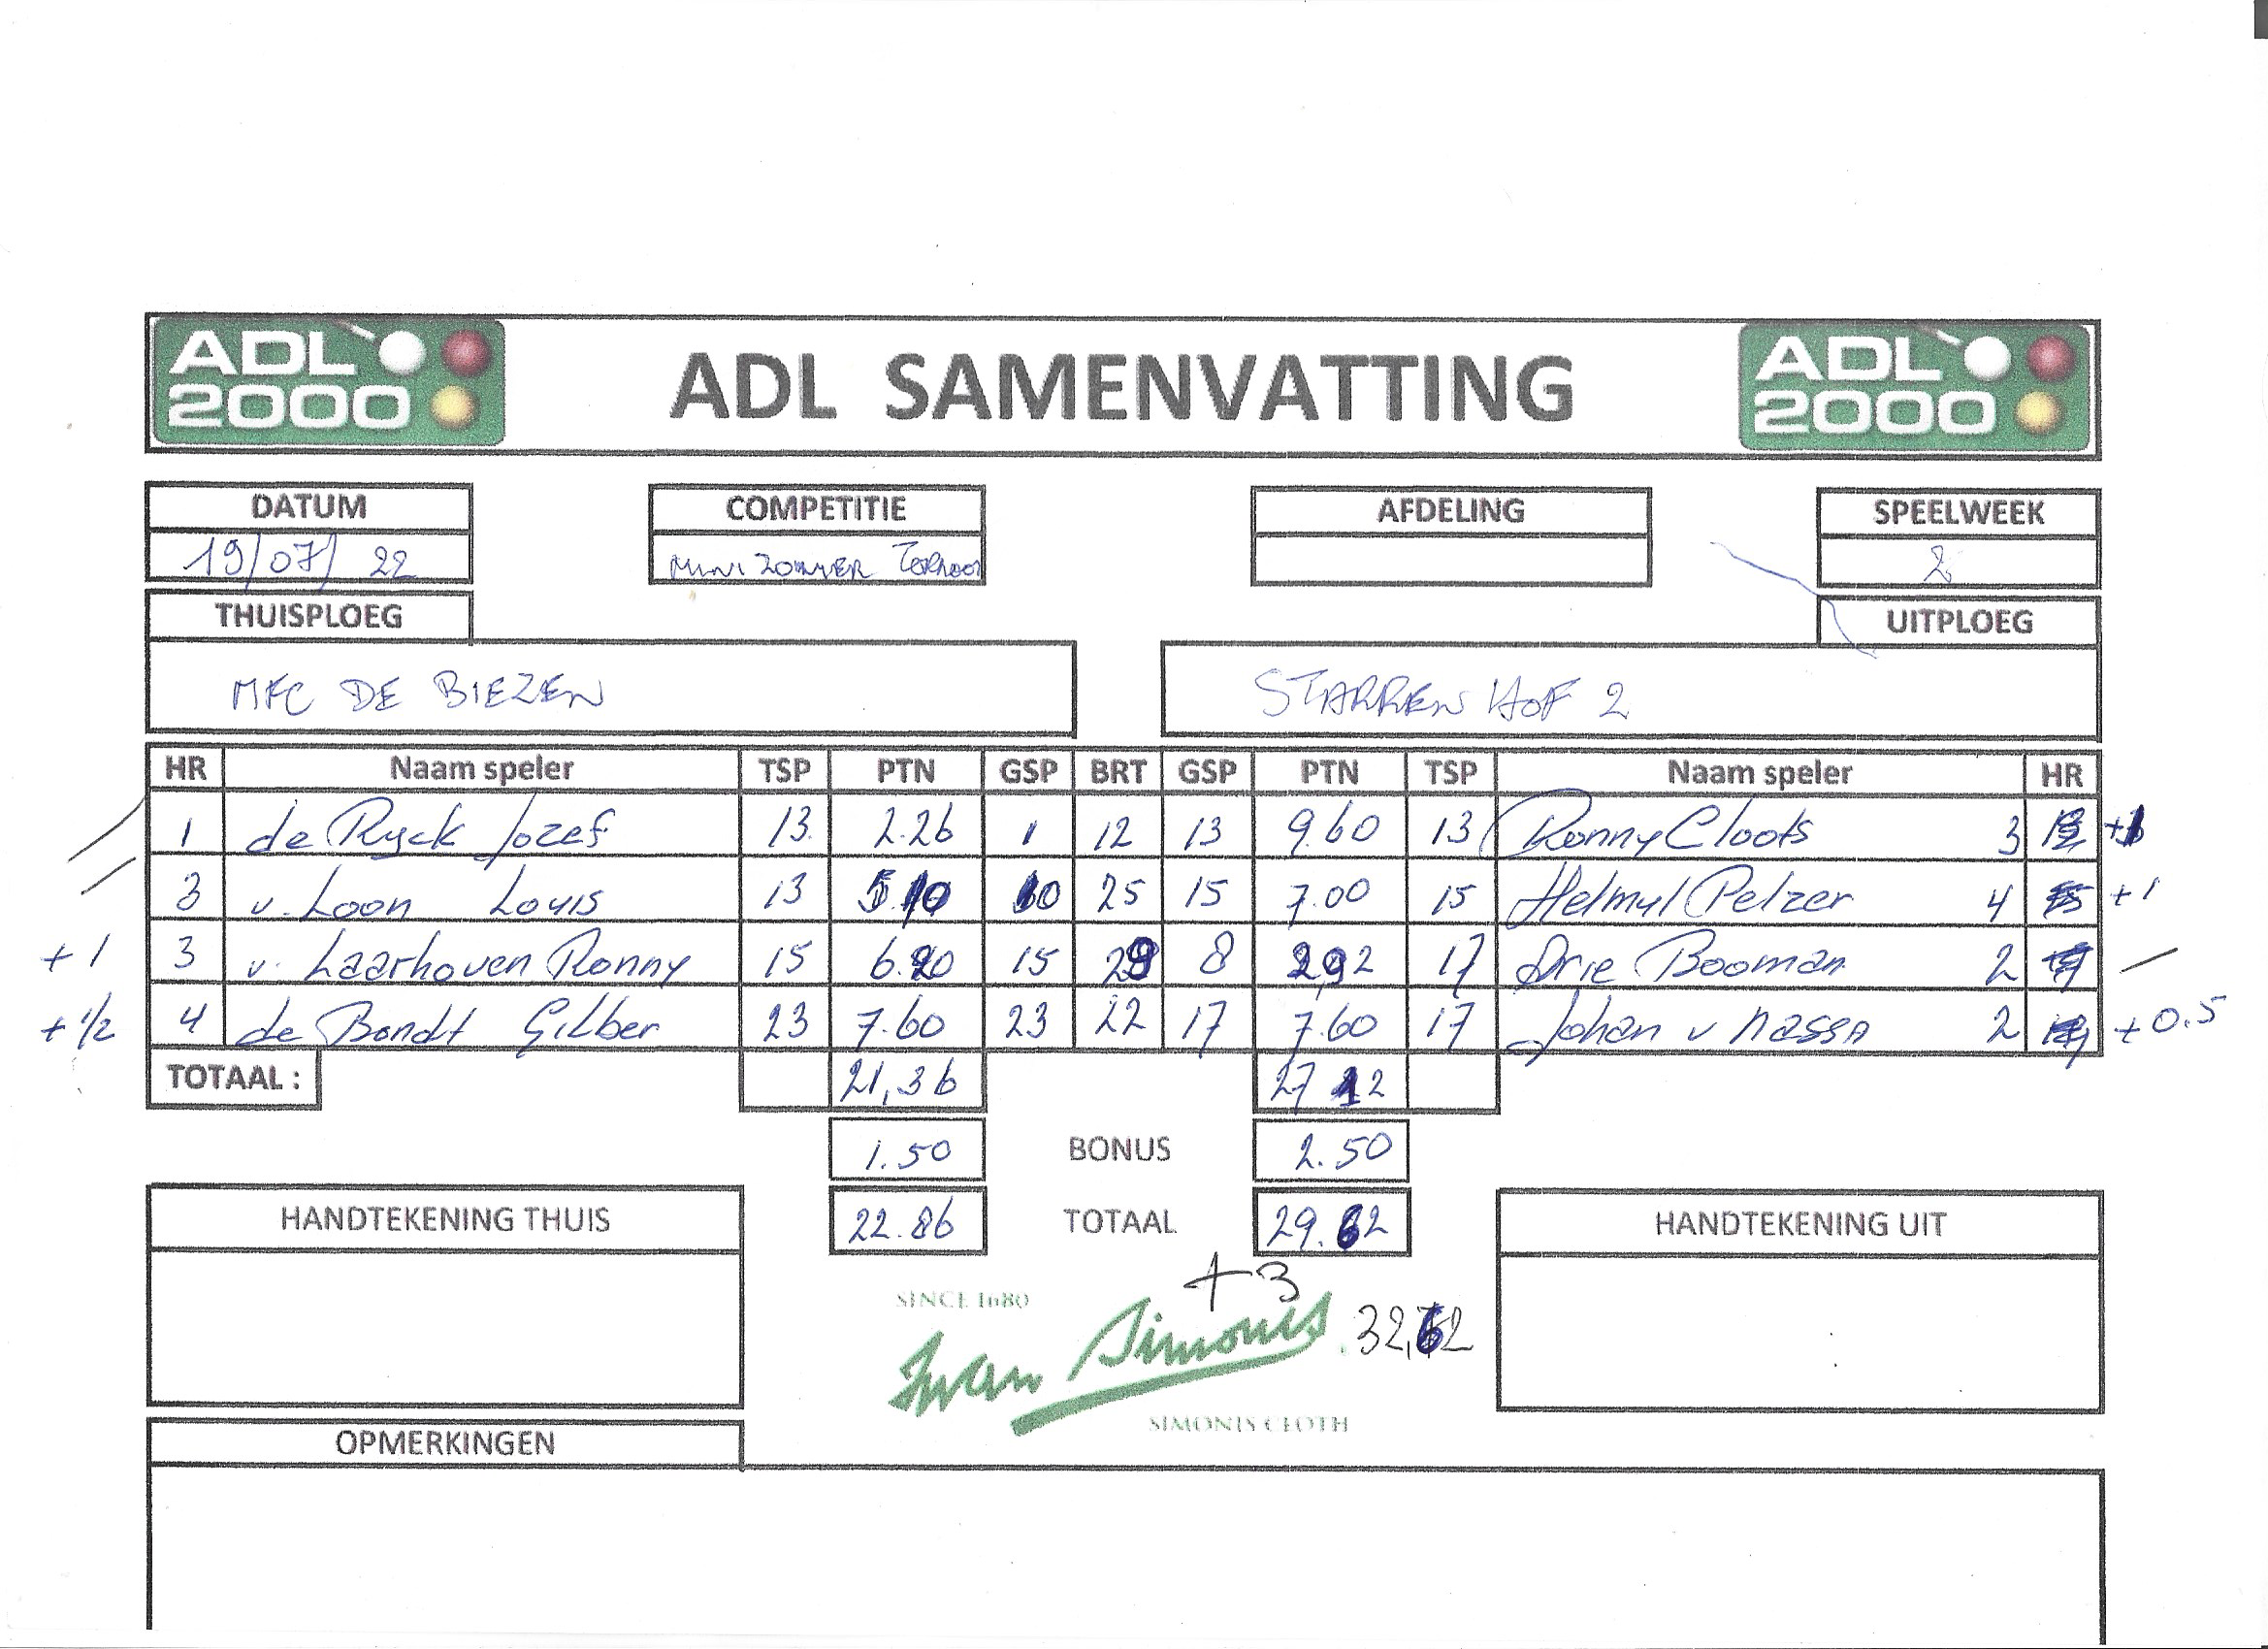 ADL 2000 ADL SAMENVATTING ADL 2000
DATUM COMPETITIE AFDELING SPEELWEEK
19/07/22 MINI ZOMER TORNOOI 2
THUISPLOEG UITPLOEG
MFC DE BIEZEN STARREN HOF 2
HR Naam speler TSP PTN GSP BRT GSP PTN TSP Naam speler HR
1 de Ryck Jozef 13 2.26 1 12 13 9.60 13 Ronny Cloots 3 +1
3 v. Loon Louis 13 5.10 10 25 15 7.00 15 Helmut Pelzer 4 +1
+1 3 v. Laarhoven Ronny 15 6.90 15 29 8 2,92 17 Drie Booman 2
+1/2 4 de Bondt Gilber 23 7.60 23 22 17 7.60 17 Johan v Nassa 2 +0.5
TOTAAL : 21,36 27 12
1.50 BONUS 2.50
HANDTEKENING THUIS 22.86 TOTAAL 29.62 HANDTEKENING UIT
+3
SINCE 1680
Iwan Simonis 32,62
SIMONIS CLOTH
OPMERKINGEN